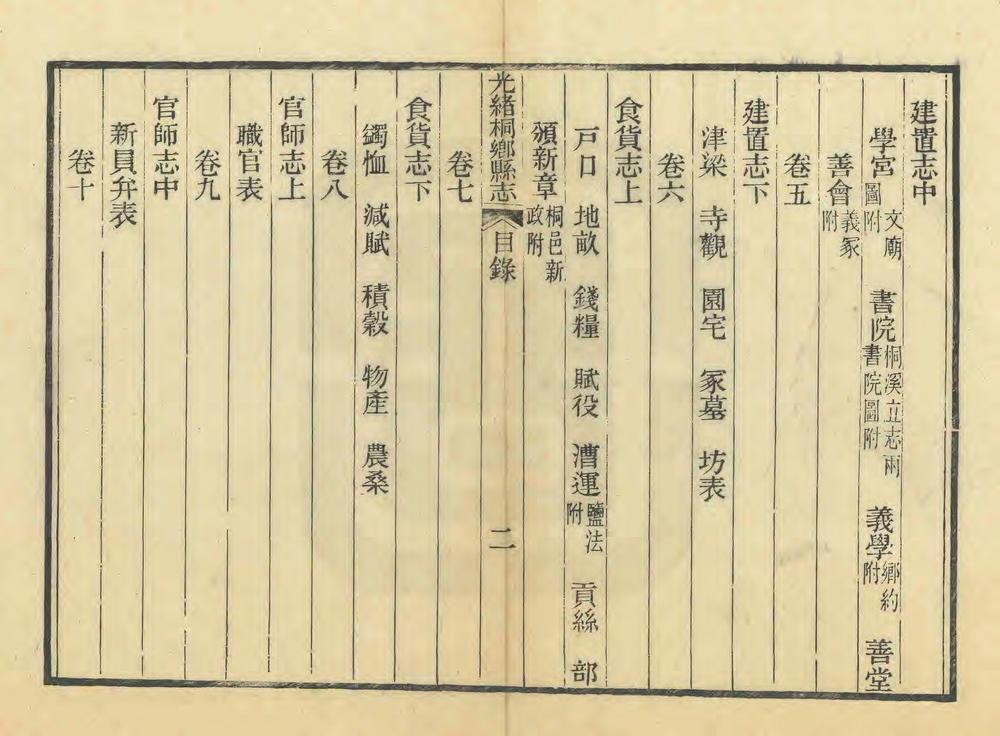 建置志中
學宮文廟圖附 書院桐溪立志兩書院圖附 義學鄉約附 善堂
善會義冢附
卷五
建置志下
津梁 寺觀 園宅 冢墓 坊表
卷六
食貨志上
戸口 地畝 錢糧 賦役 漕運鹽法附 貢絲 部
頒新章桐邑新政附
光緒桐鄉縣志 目錄 二
卷七
食貨志下
蠲恤 減賦 積穀 物產 農桑
卷八
官師志上
職官表
卷九
官師志中
新員弁表
卷十